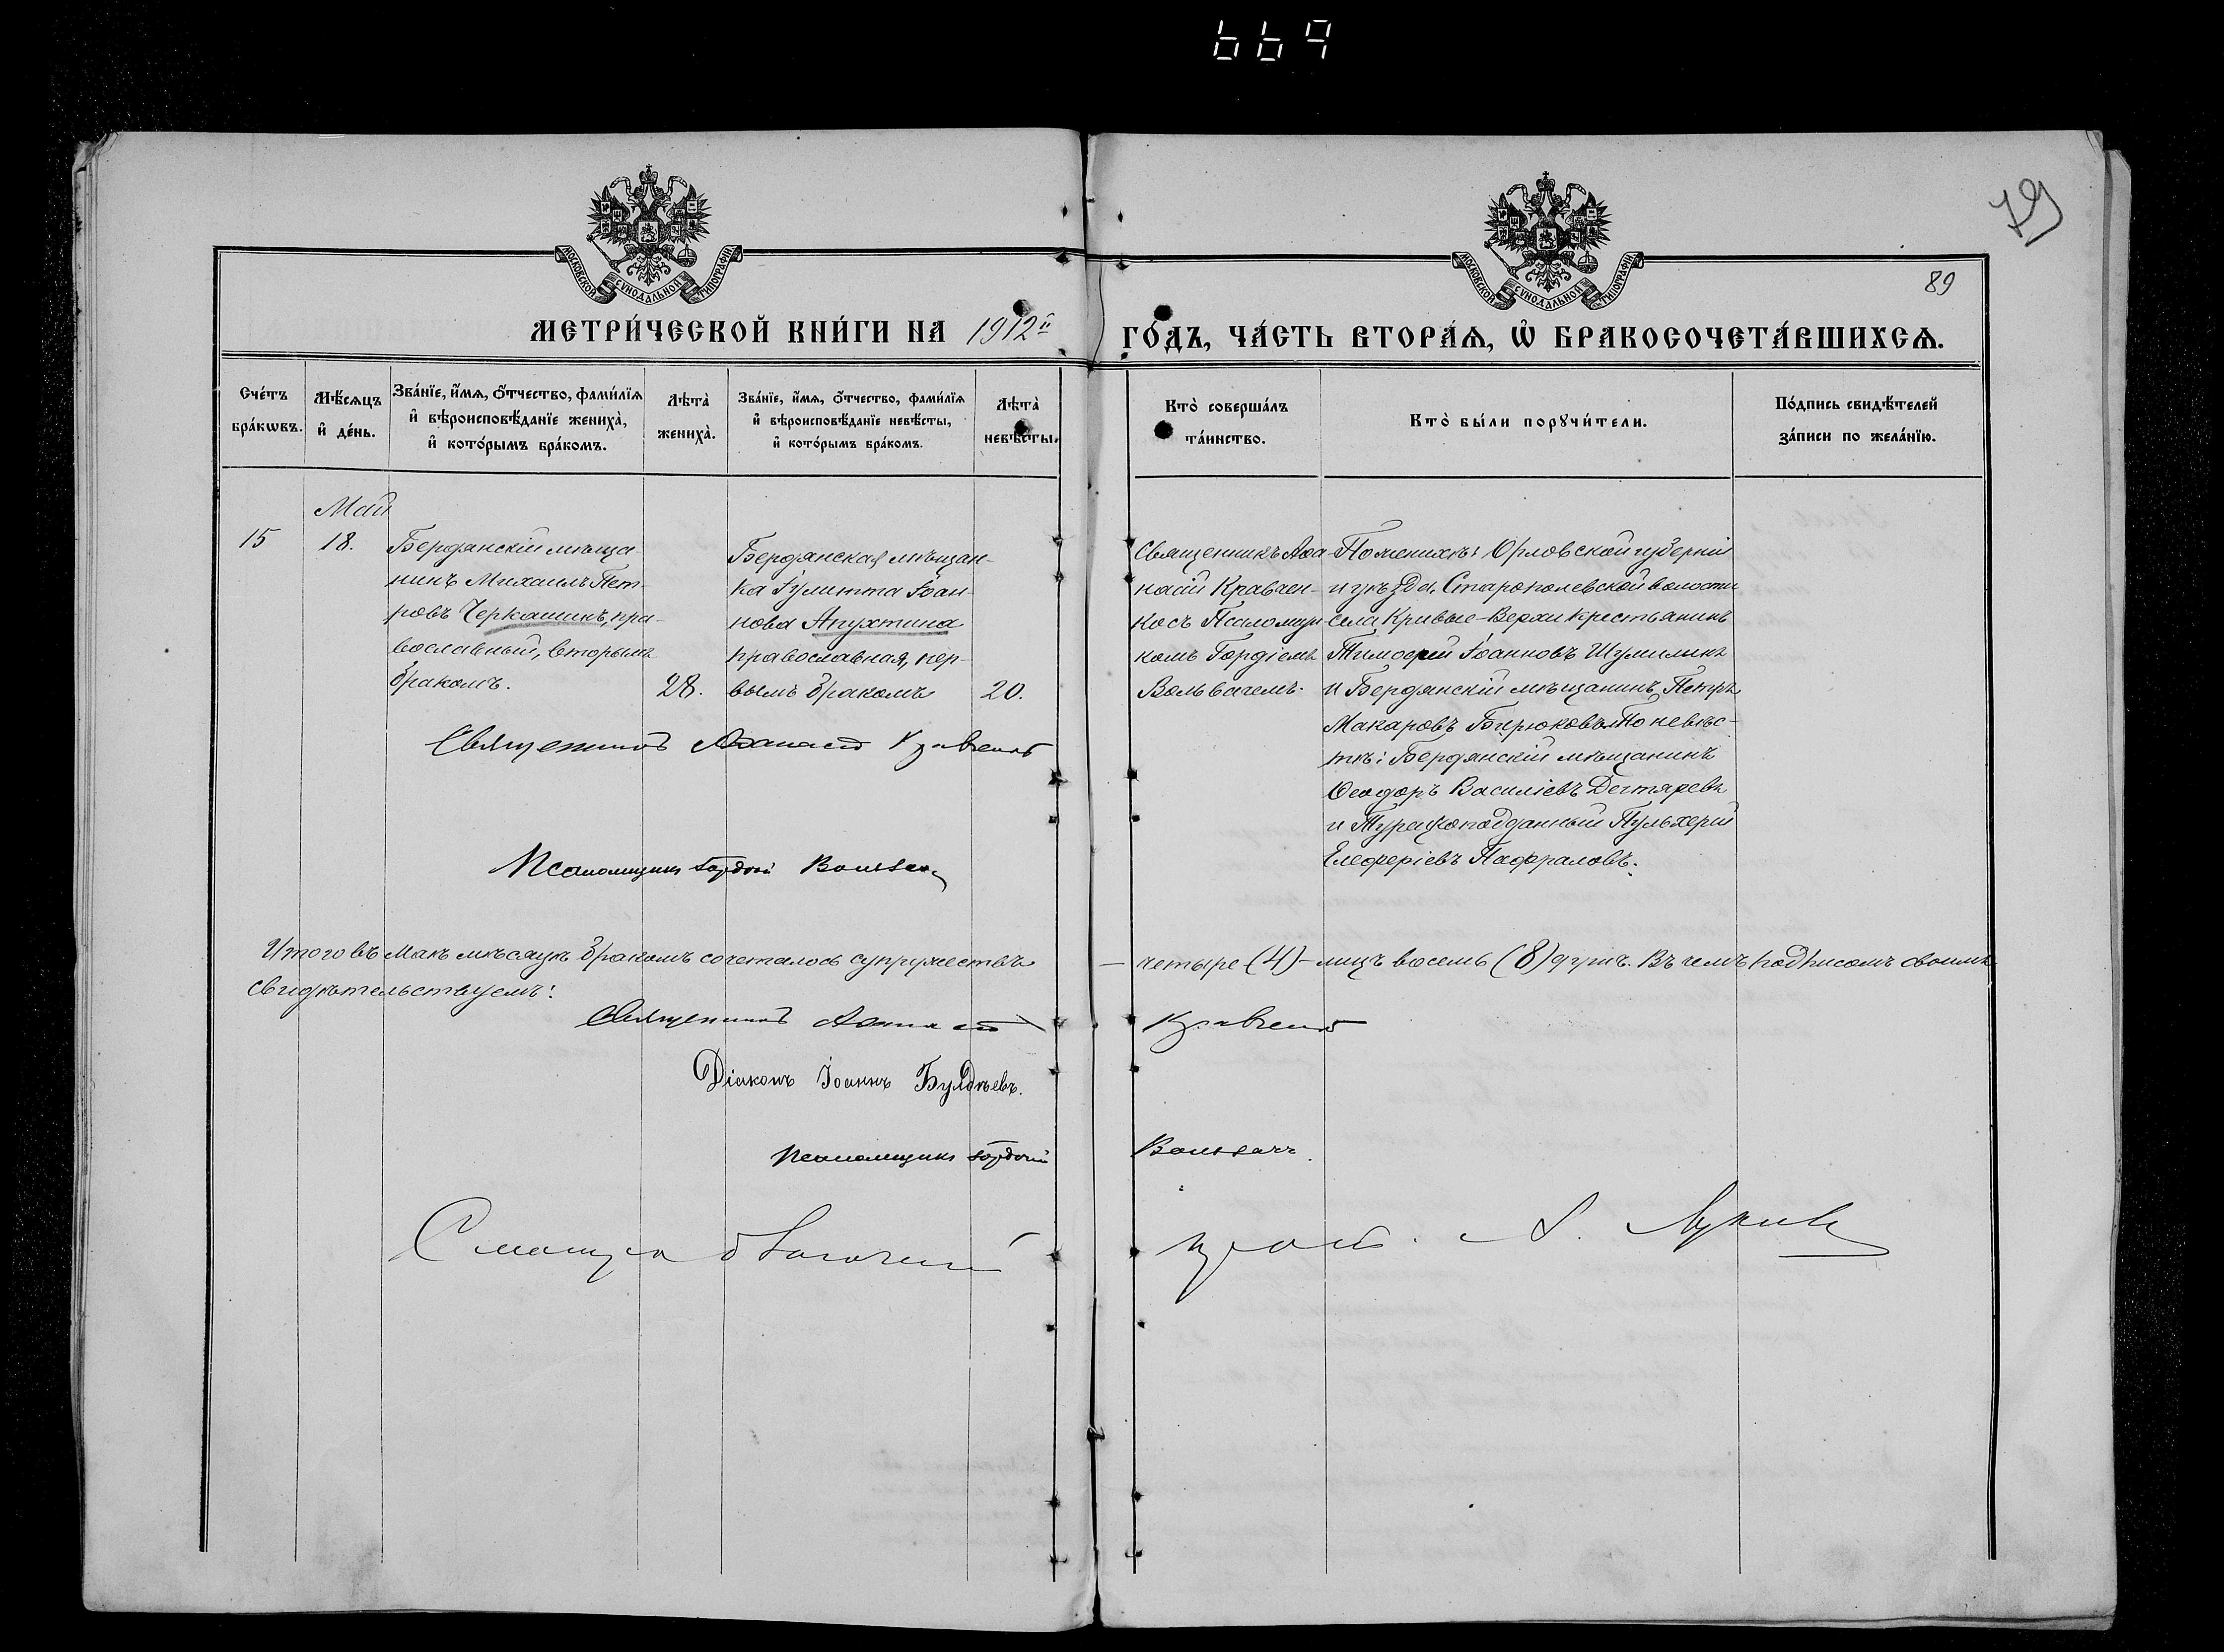 669
79
89
МОСКОВСКОЙ СѴНОДАЛЬНОЙ ТИПОГРАФІИ
МОСКОВСКОЙ СѴНОДАЛЬНОЙ ТИПОГРАФІИ
МЕТРИ́ЧЕСКОЙ КНИ́ГИ НА 1912й ГО́ДЪ, ЧА́СТЬ ВТОРА́Ѧ, Ѡ҆ БРАКОСОЧЕТА́ВШИХСѦ.
Сче́тъ бра́кѡвъ.
Мѣ́сѧцъ и҆ де́нь.
Зва́нїе, и҆́мѧ, ѻ҆́тчество, фами́лїѧ и҆ вѣроисповѣ́данїе жениха̀, и҆ кото́рымъ бра́комъ.
Лѣта̀ жениха̀.
Зва́нїе, и҆́мѧ, ѻ҆́тчество, фами́лїѧ и҆ вѣроисповѣ́данїе невѣ́сты, и҆ кото́рымъ бра́комъ.
Лѣта̀ невѣ́сты.
Кто̀ соверша́лъ та́инство.
Кто̀ бы́ли порꙋчи́тели.
По́дпись свидѣ́телей за́писи по жела́нїю.
Май
15
18.
Бердянскій мѣща-
нинъ Михаилъ Пет-
ровъ Черкашинъ, пра-
вославный, вторымъ
бракомъ.
28.
Бердянская мѣщан-
ка Іулитта Іоан-
нова Апухтина
православная, пер-
вымъ бракомъ
20.
Священникъ Аѳа-
насій Кравчен-
ко съ Псаломщи-
комъ Гордіемъ
Вольвачемъ.
По женихѣ: Орловской губерніи
и уѣзда, Старополевской волости
села Кривые-Верхи крестьянинъ
Тимоѳей Іоанновъ Шумилинъ
и Бердянскій мѣщанинъ Петръ
Макаровъ Бирюковъ. По невѣс-
тѣ: Бердянскій мѣщанинъ
Ѳеодоръ Василіевъ Дегтяревъ
и Турецкоподданный Пульхерій
Елеферіевъ Пафраловъ.
Священникъ Аѳанасій Кравченко
Псаломщикъ Гордій Вольвач
Итого въ Маѣ мѣсяцѣ бракомъ сочеталось супружествъ — четыре (4) – лицъ восемь (8) душъ. Въ чемъ подписомъ своимъ
свидѣтельствуемъ:
Священникъ Аѳанасій Кравченко
Діаконъ Іоаннъ Булдѣевъ.
Псаломщикъ Гордій Вольвачъ.
Смотрѣлъ благочинный